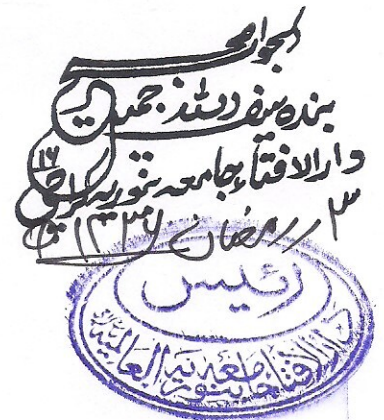 الجواب صحیح
بندہ سیف اللہ جمیل
دارالافتاء جامعہ بنوریہ کراچی ۱۶
۳ رمضان ۱۴۳۶ھ
رئیس
دار الافتاء جامعة بنورية العالمية